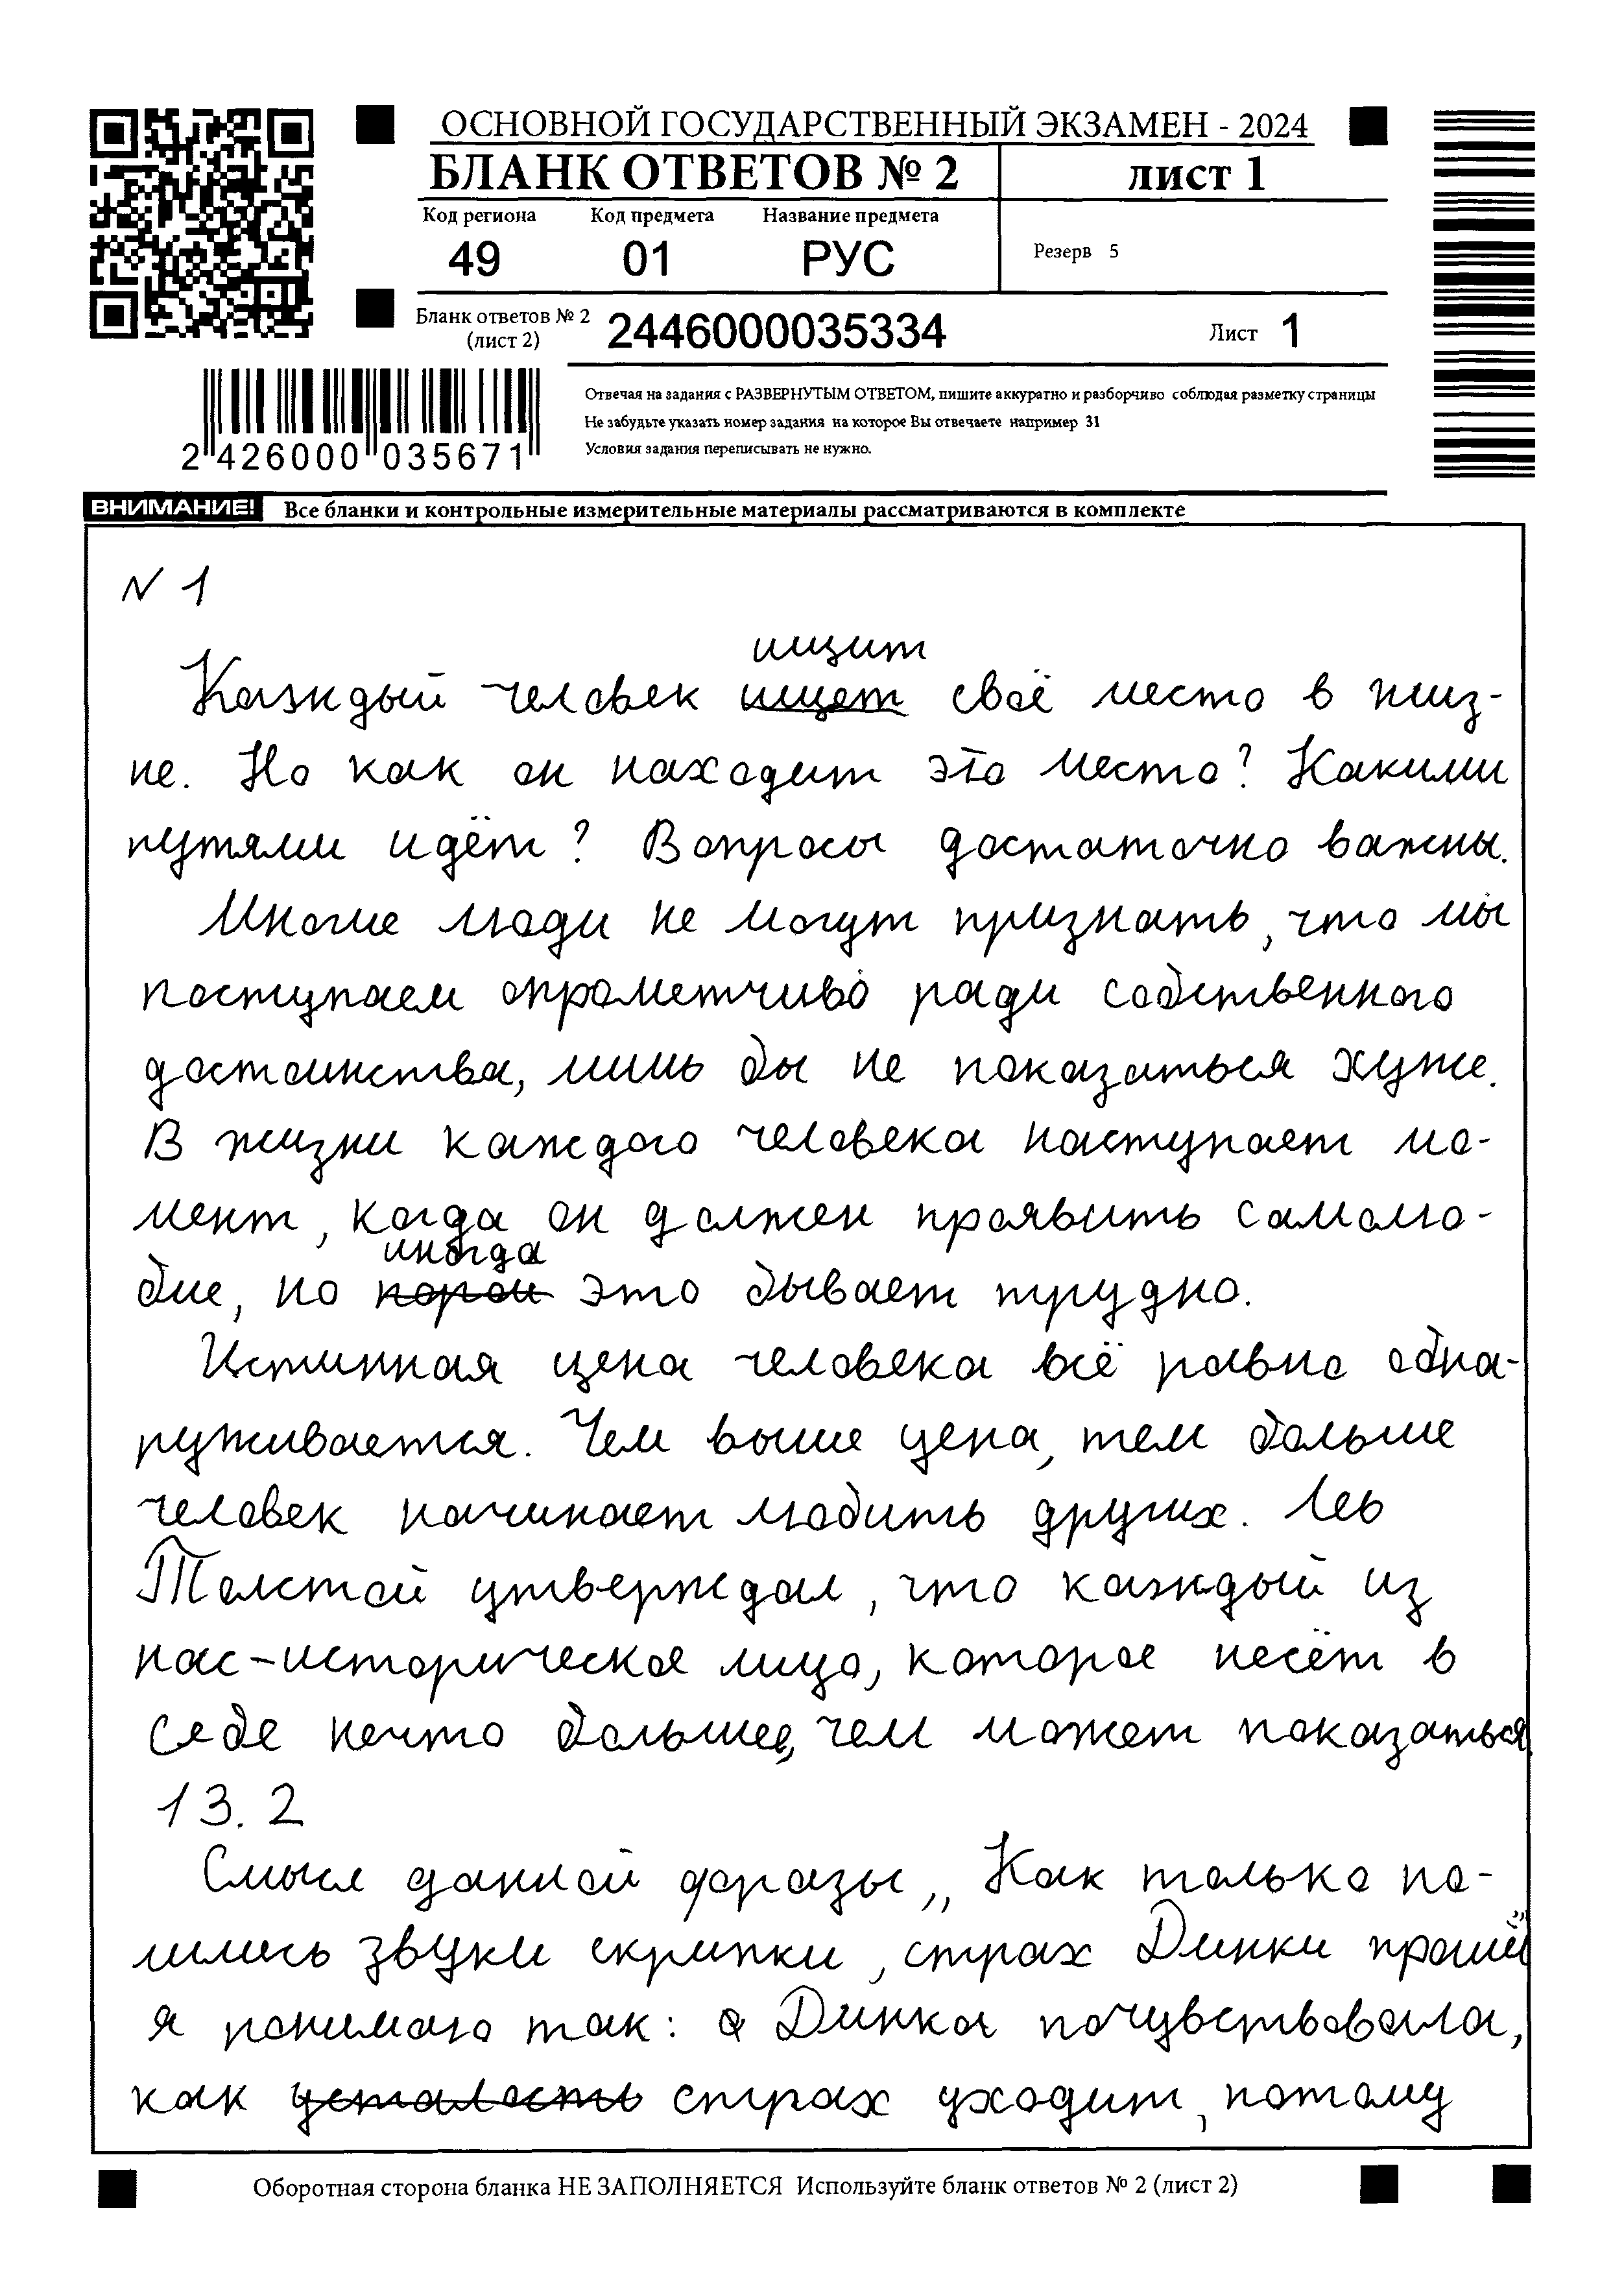 ОСНОВНОЙ ГОСУДАРСТВЕННЫЙ ЭКЗАМЕН - 2024
БЛАНК ОТВЕТОВ № 2
лист 1
Код региона
Код предмета
Название предмета
49
01
РУС
Резерв 5
Бланк ответов № 2
(лист 2)
2446000035334
Лист 1
Отвечая на задания с РАЗВЕРНУТЫМ ОТВЕТОМ, пишите аккуратно и разборчиво соблюдая разметку страницы
Не забудьте указать номер задания на которое Вы отвечаете например 31
Условия задания переписывать не нужно.
2 426000 035671
ВНИМАНИЕ! Все бланки и контрольные измерительные материалы рассматриваются в комплекте
N 1
ищит
Каждый человек ищет своё место в жиз-
не. Но как он находит это место? Какими
путями идёт? Вопросы достаточно важны.
Многие люди не могут признать, что мы
поступаем опрометчиво ради собственного
достоинства, лишь бы не показаться хуже.
В жизни каждого человека наступает мо-
мент, когда он должен проявить самолю-
иногда
бие, но порои это бывает трудно.
Истинная цена человека всё равно обна-
руживается. Чем выше цена, тем больше
человек начинает любить других. Лев
Толстой утверждал, что каждый из
нас-историческое лицо, которое несёт в
себе нечто большее, чем может показаться.
13.2
Смысл данной фразы „Как только по-
лились звуки скрипки, страх Динки прошёл"
я понимаю так: а Динка почувствовала,
как усталость страх уходит, потому
Оборотная сторона бланка НЕ ЗАПОЛНЯЕТСЯ Используйте бланк ответов № 2 (лист 2)